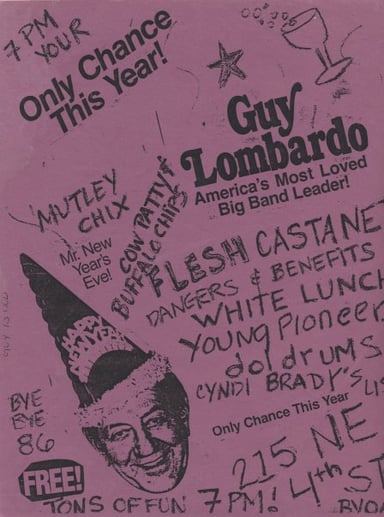 7 PM
YOUR
Only Chance
This Year!
Guy
Lombardo
America's Most Loved
Big Band Leader!
MUTLEY
CHIX
Mr. New
Year's
Eve!
COW PATTY &
BUFFALO CHIPS
FLESH CASTANE
DANGERS & BENEFITS
WHITE LUNCH
YOUNG PIONEER
doldrums
CYNDI BRADY'S LIS
Only Chance This Year
HAPPY
NEW YEAR
BYE
BYE
86
FREE!
215 NE
4th ST
TONS OF FUN 7 PM!
BYO